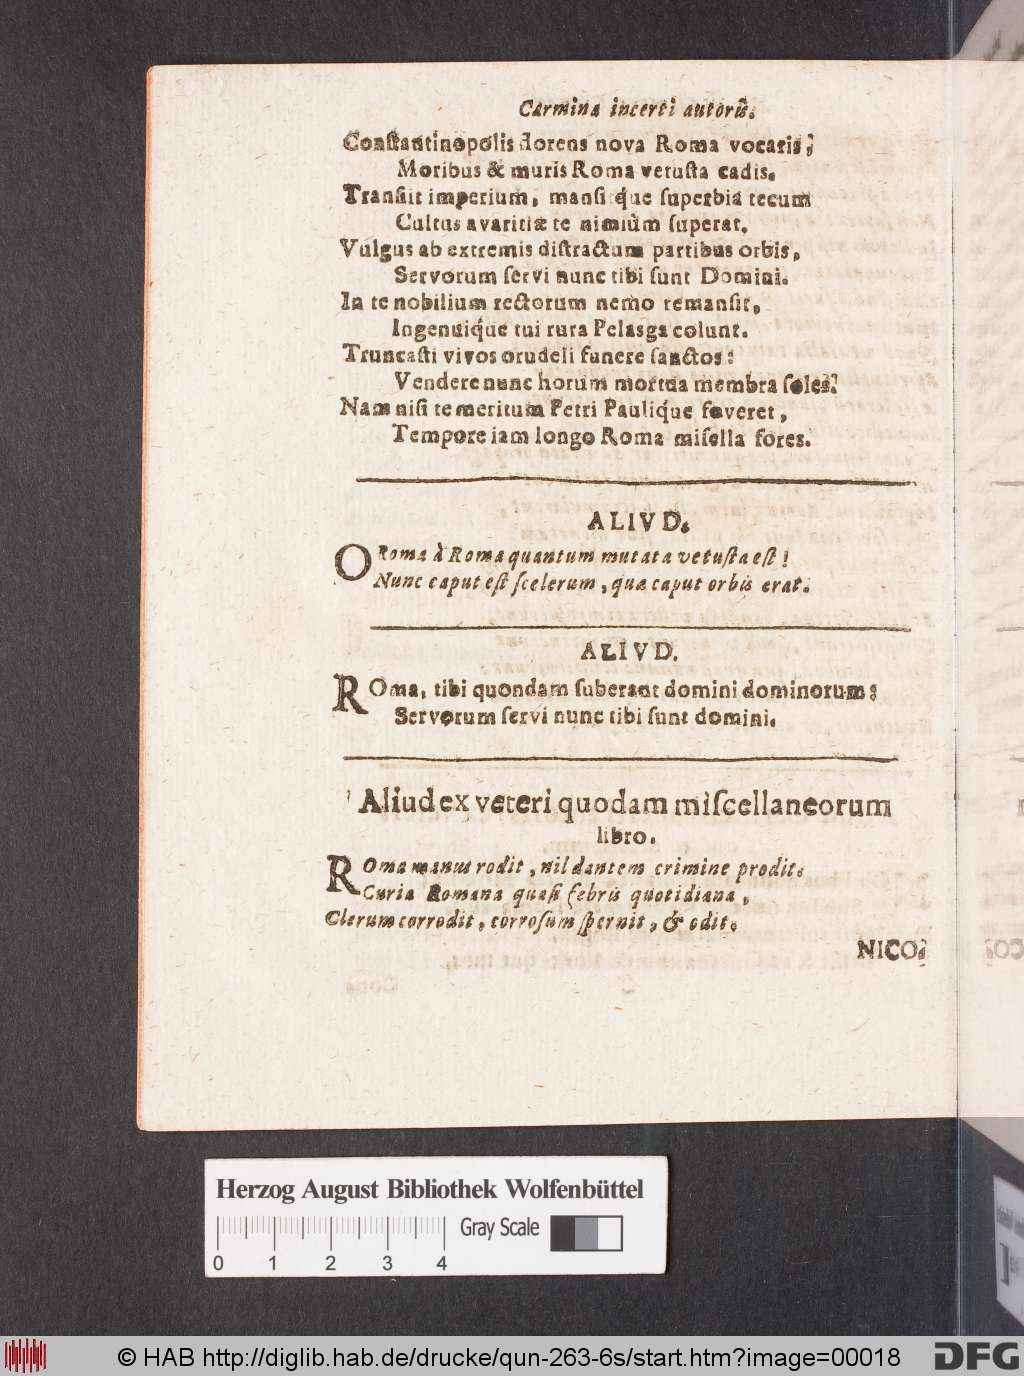 Carmina incerti autoris.
Constantinopolis florens nova Roma vocaris;
Moribus & muris Roma vetusta cadis.
Transiit imperium, mansitque superbia tecum
Cultus avaritiæ te nimiùm superat.
Vulgus ab extremis distractum partibus orbis,
Servorum servi nunc tibi sunt Domini.
In te nobilium rectorum nemo remansit,
Ingenuiq́ue tui rura Pelasga colunt.
Truncasti vivos crudeli funere sanctos:
Vendere nunc horum mortua membra soles.
Nam nisi te meritum Petri Pauliq́ue foveret,
Tempore iam longo Roma misella fores.
ALIVD.
O Roma à Roma quantum mutata vetusta est!
Nunc caput est scelerum, quæ caput orbis erat.
ALIVD.
ROma, tibi quondam suberant domini dominorum:
Servorum servi nunc tibi sunt domini.
Aliud ex veteri quodam miscellaneorum
libro.
ROma manus rodit, nil dantem crimine prodit.
Curia Romana quasi febris quotidiana,
Clerum corrodit, corrosum spernit, & odit.
NICO-
Herzog August Bibliothek Wolfenbüttel
Gray Scale
0 1 2 3 4
© HAB http://diglib.hab.de/drucke/qun-263-6s/start.htm?image=00018
DFG